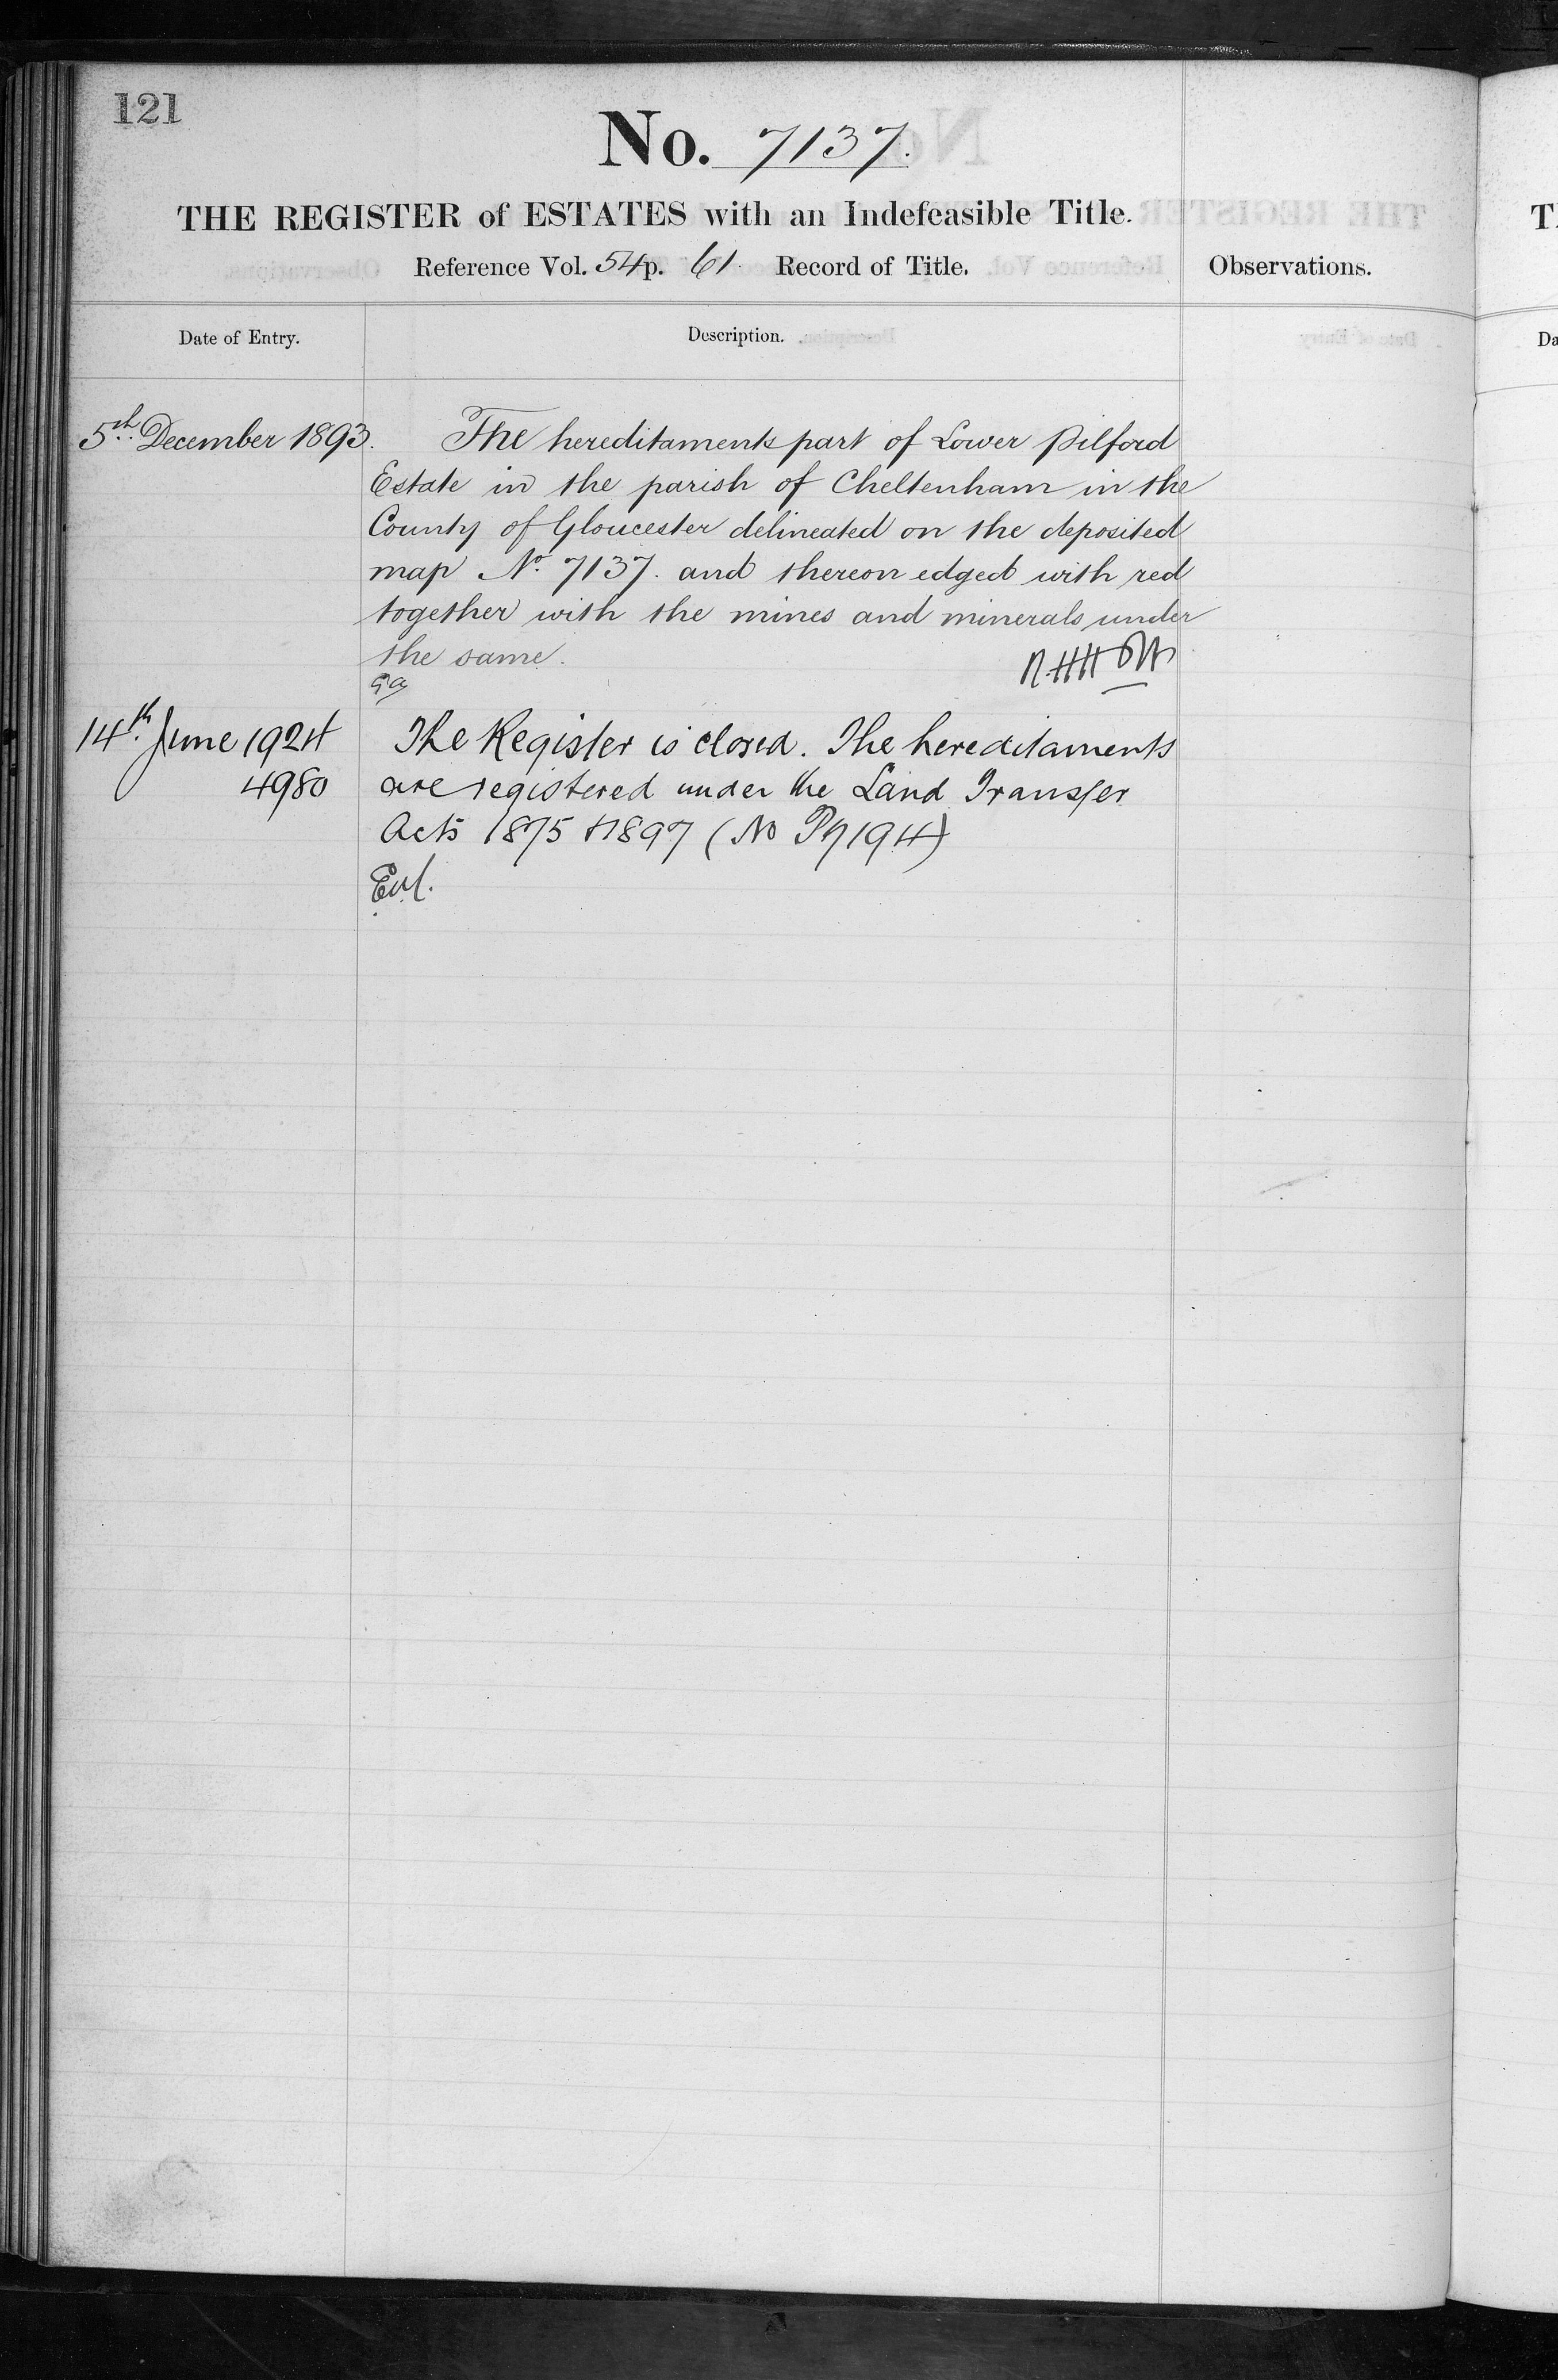 121
No. 7137.
THE REGISTER of ESTATES with an Indefeasible Title.
Reference Vol. 54 p. 61 Record of Title. Observations.
Date of Entry. Description.
5th December 1893. The hereditaments part of Lower Pilford
Estate in the parish of Cheltenham in the
County of Gloucester delineated on the deposited
map No. 7137. and thereon edged with red
together with the mines and minerals under
the same.
14th June 1924 The Register is closed. The hereditaments
4980 are registered under the Land Transfer
Acts 1875 & 1897 (No P47194)